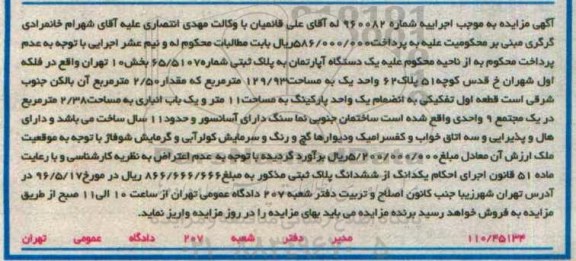 آگهی مزایده به موجب اجراییه شماره ۹۶۰۰۸۲ له آقای علی قائمیان با وکالت مهدی انتصاری علیه آقای شهرام خانمرادی
گرگری مبنی بر محکومیت علیه به پرداخت۵۸۶/۰۰۰/۰۰۰ریال بابت مطالبات محکوم له و نیم عشر اجرایی با توجه به عدم
پرداخت محکوم به از ناحیه محکوم علیه یک دستگاه آپارتمان به پلاک ثبتی شماره۶۵/۵۱۰۷ بخش۱۰ تهران واقع در فلکه
اول شهران خ قدس کوچه۵۱ پلاک۶۲ واحد یک به مساحت۱۲۹/۹۳ مترمربع که مقدار۲/۵۰ مترمربع آن بالکن جنوب
شرقی است قطعه اول تفکیکی به انضمام یک واحد پارکینگ به مساحت۱۱ متر و یک باب انباری به مساحت۲/۳۸ مترمربع
در یک مجتمع ۹ واحدی واقع شده است ساختمان جنوبی نما سنگ دارای آسانسور و حدود۱۱ سال ساخت می باشد و دارای
هال و پذیرایی و سه اتاق خواب و کفسرامیک ودیوارها گچ و رنگ و سرمایش کولرآبی و گرمایش شوفاژ با توجه به موقعیت
ملک ارزش آن معادل مبلغ۵/۲۰۰/۰۰۰/۰۰۰ریال برآورد گردیده با توجه به عدم اعتراض به نظریه کارشناسی و با رعایت
ماده ۵۱ قانون اجرای احکام یکدانگ از ششدانگ پلاک ثبتی مذکور به مبلغ۸۶۶/۶۶۶/۶۶۶ ریال در مورخ۹۶/۵/۱۷ در
آدرس تهران شهرزیبا جنب کانون اصلاح و تربیت دفتر شعبه ۲۰۷ دادگاه عمومی تهران از ساعت ۱۰ الی۱۱ صبح از طریق
مزایده به فروش خواهد رسید برنده مزایده می باید بهای مزایده را در روز مزایده واریز نماید.
۱۱۰/۴۵۱۳۴ مدیر دفتر شعبه ۲۰۷ دادگاه عمومی تهران